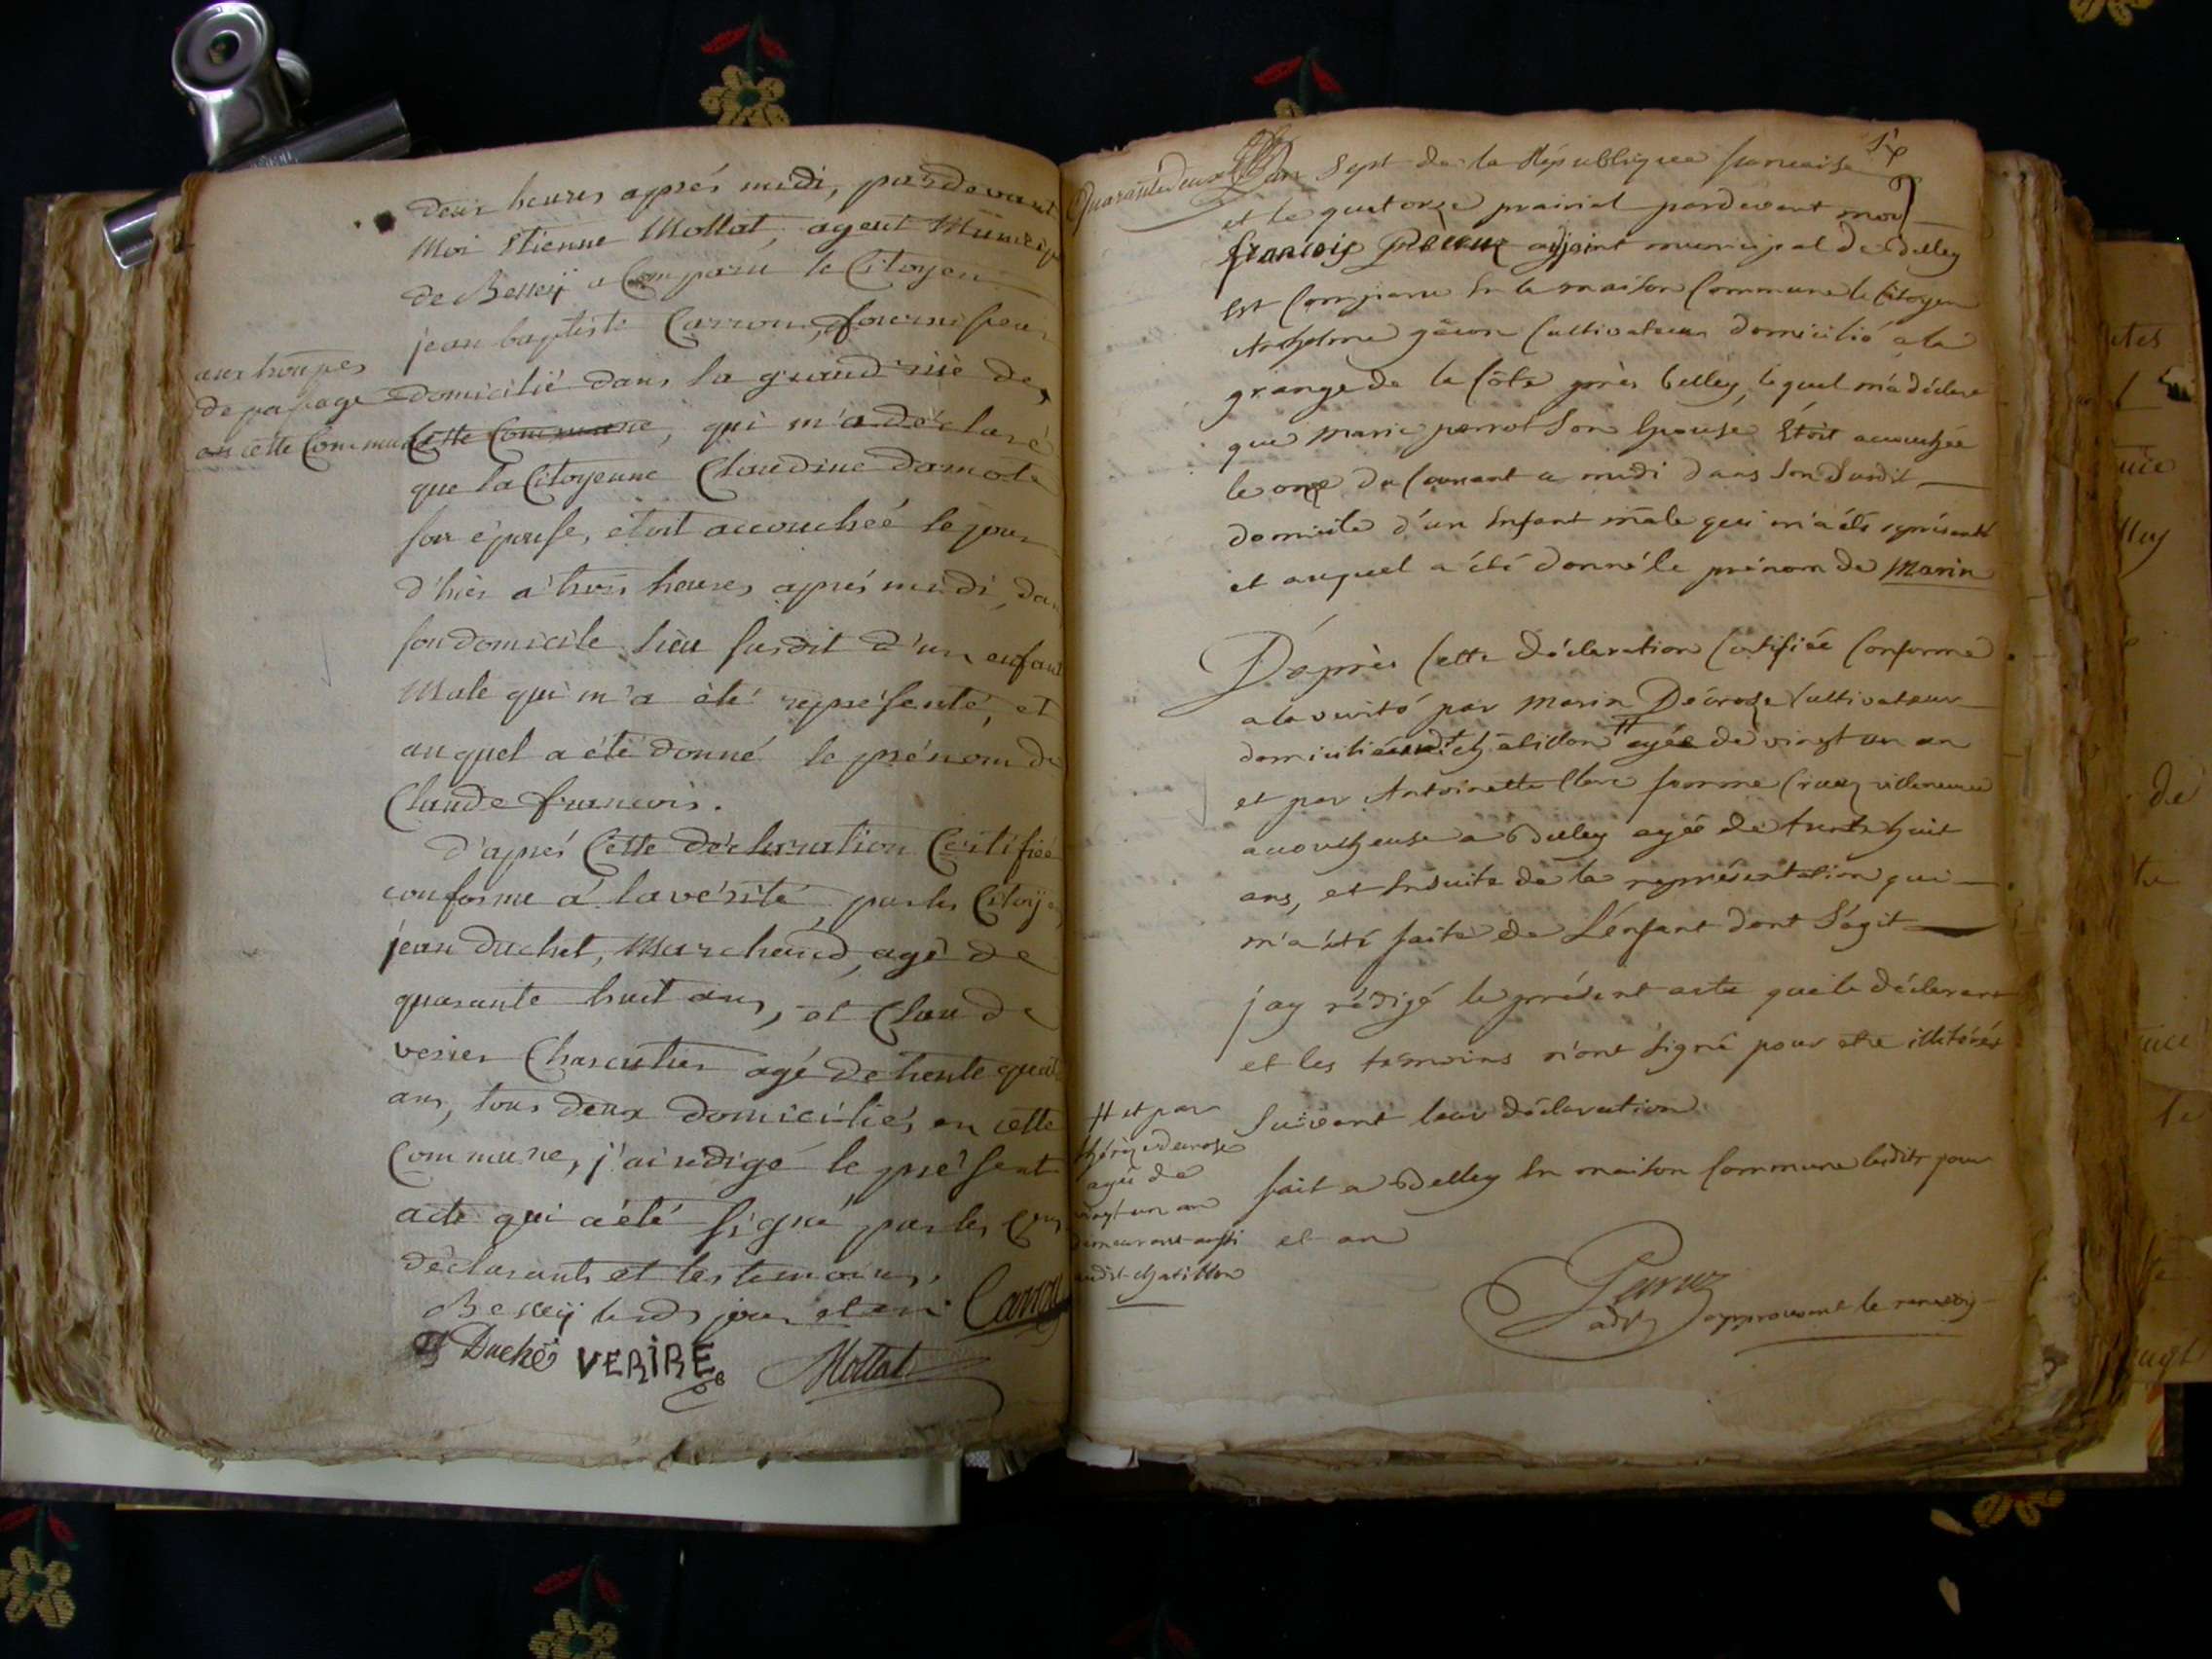 deux heures après midi, pardevant
Moi Etienne Mollat, agent Municip
de Belley a Comparu le Citoyen
jean baptiste Carron, fournisseur
aux troupes
de passage domicilié dans la grand rüe de
en cette Commune cette Commune, qui m'a déclaré
que la Citoyenne Claudine damote
son épouse, étoit accouchée le jour
d'hier à trois heures après midi, dan
son domicile lieu susdit d'un enfant
Male qui m'a été représenté, et
auquel a été donné le prénom de
Claude francois.
d'après Cette déclaration Certifiée
conforme à la vérité, par les Citoy
jean duchet, Marchand, agé de
quarante huit ans, et Claude
verier Charcutier agé de trente quat
ans, tous deux domiciliés en cette
Commune, j'ai rédigé le présent
acte qui a été signé par les
déclarants et les temoins,
Belley lesds jour et an Carron
Duché VERIRE Mollat
Quarantedeux L'an Sept de la République francaise
et le quatorze prairial pardevant moy
francois adjoint municipal de Belley
Est Comparu En la maison Commune le Citoyen
Anthelme géron Cultivateur domicilié a la
grange de la Côte près belley, lequel m'a déclaré
que Marie perrot Son Epouse Etoit accouchée
le onze du Courant a midi dans Son Susdit
domicile d'un Enfant mâle qui m'a été représenté
et auquel a été donné le prénom de Marin
D'après Cette déclaration Certifiée Conforme
a la verité par marin Décroze Cultivateur
domicilié audit chatillon # agée de vingt un an
et par Antoinette Clerc femme Cruez villeneuve
accoucheuse a Belley agée de trente huit
ans, et Ensuite de la représentation qui
m'a été faite de L'enfant dont S'agit
j'ay rédigé le présent acte que le déclarant
et les temoins n'ont Signé pour etre illiterés
Suivant leur déclaration
fait a Belley En maison Commune lesdits jour
et an
# et par
thérèse decroze
agée de
vingt un an
demeurant aussi
audit chatillon
adjt approuvant le renvoy